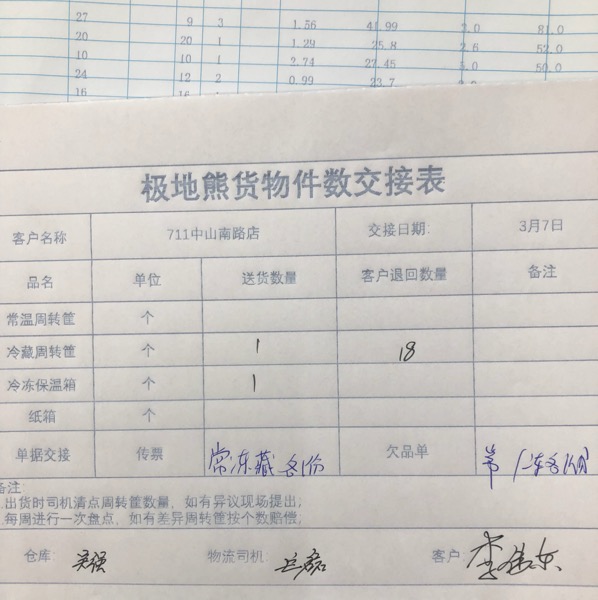 27 9 3 1.56 41.99 2.0 81.0
20 20 1 1.29 25.8 2.6 52.0
10 10 1 2.74 27.45 5.0 50.0
24 12 2 0.99 23.7
16 16 1
极地熊货物件数交接表
客户名称 711中山南路店 交接日期: 3月7日
品名 单位 送货数量 客户退回数量 备注
常温周转筐 个
冷藏周转筐 个 1 18
冷冻保温箱 个 1
纸箱 个
单据交接 传票 常冻藏各1份 欠品单
备注:
.出货时司机清点周转筐数量，如有异议现场提出;
.每周进行一次盘点，如有差异周转筐按个数赔偿;
仓库: 物流司机: 客户: